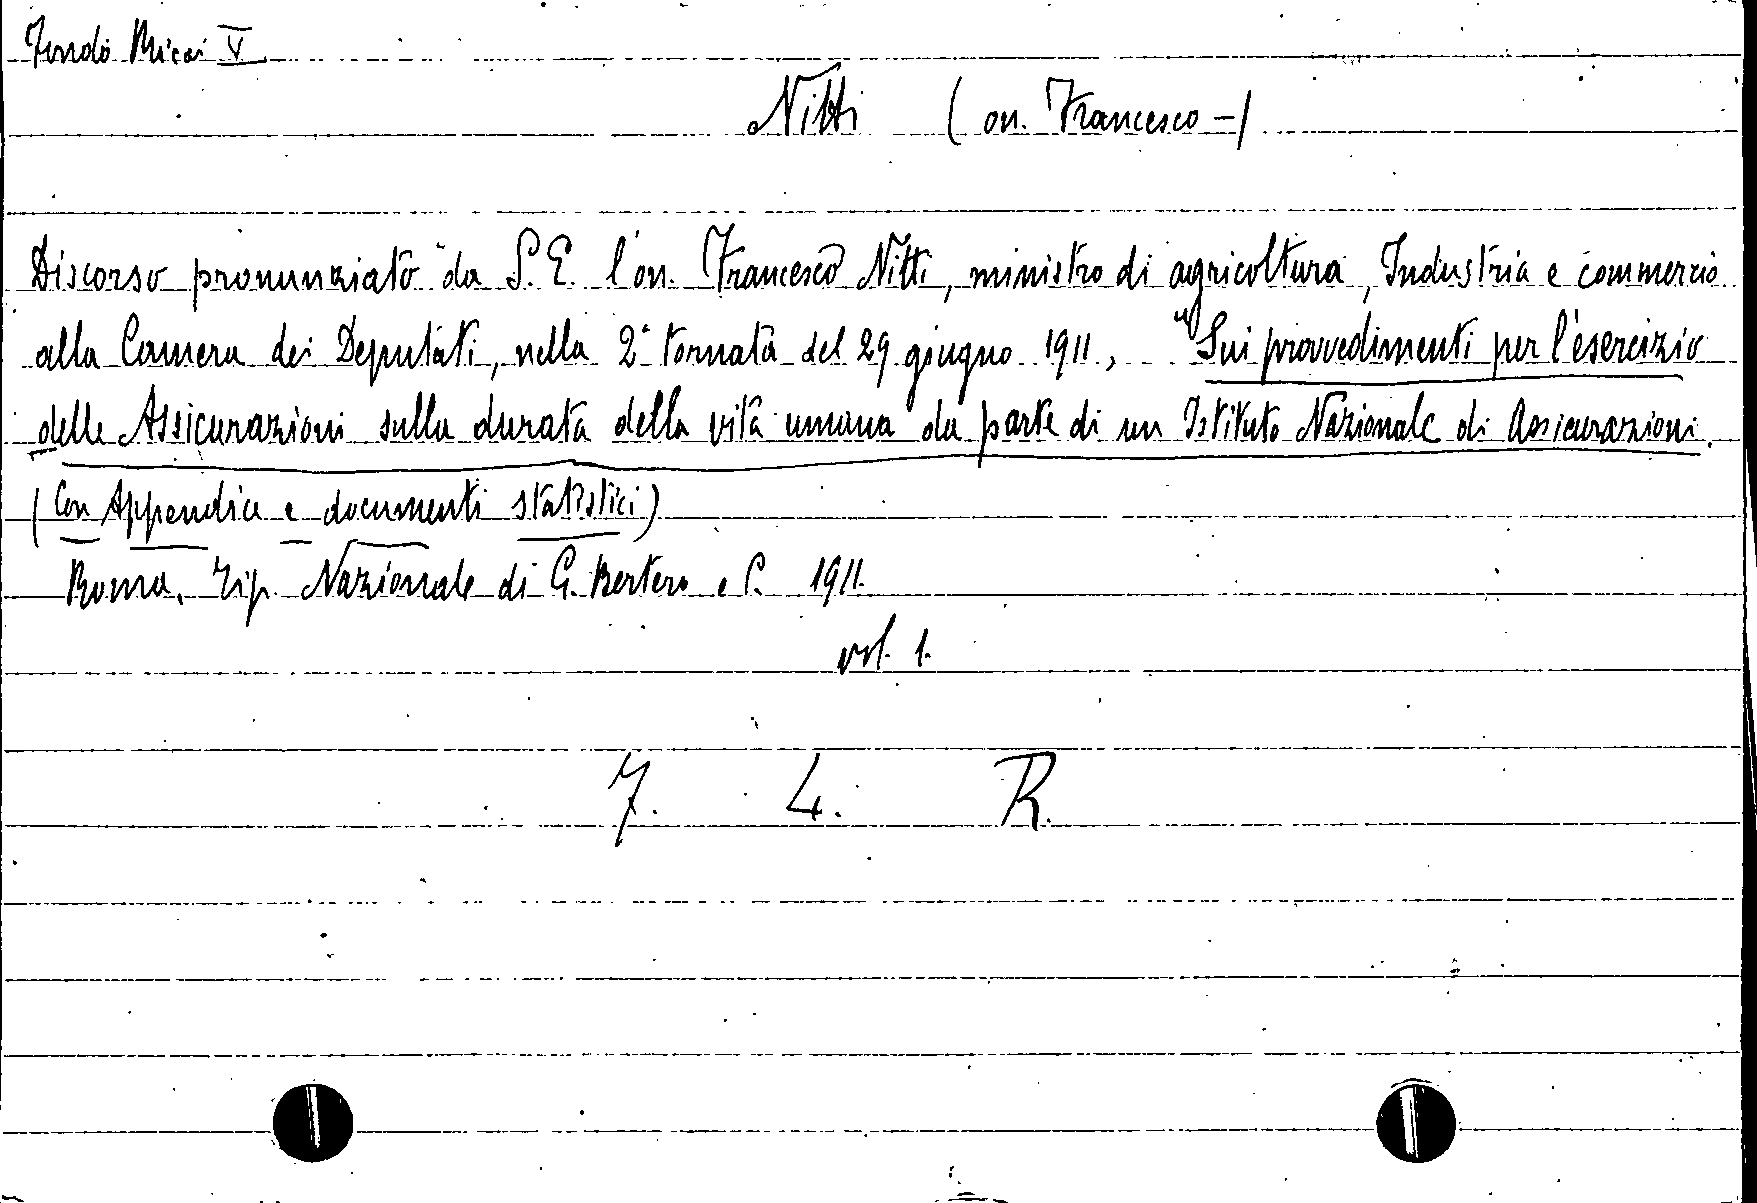 Fondo Micai V
Nitti (on. Francesco -)
Discorso pronunziato da S. E. l'on. Francesco Nitti, ministro di agricoltura, Industria e commercio
alla Camera dei Deputati, nella 2ª tornata del 29 giugno 1911, "Sui provvedimenti per l'esercizio
delle Assicurazioni sulla durata della vita umana da parte di un Istituto Nazionale di Assicurazioni.
(Con Appendice e documenti statistici)
Roma. Tip. Nazionale di G. Bertero e C. 1911.
vol. 1.
7. 4. R.